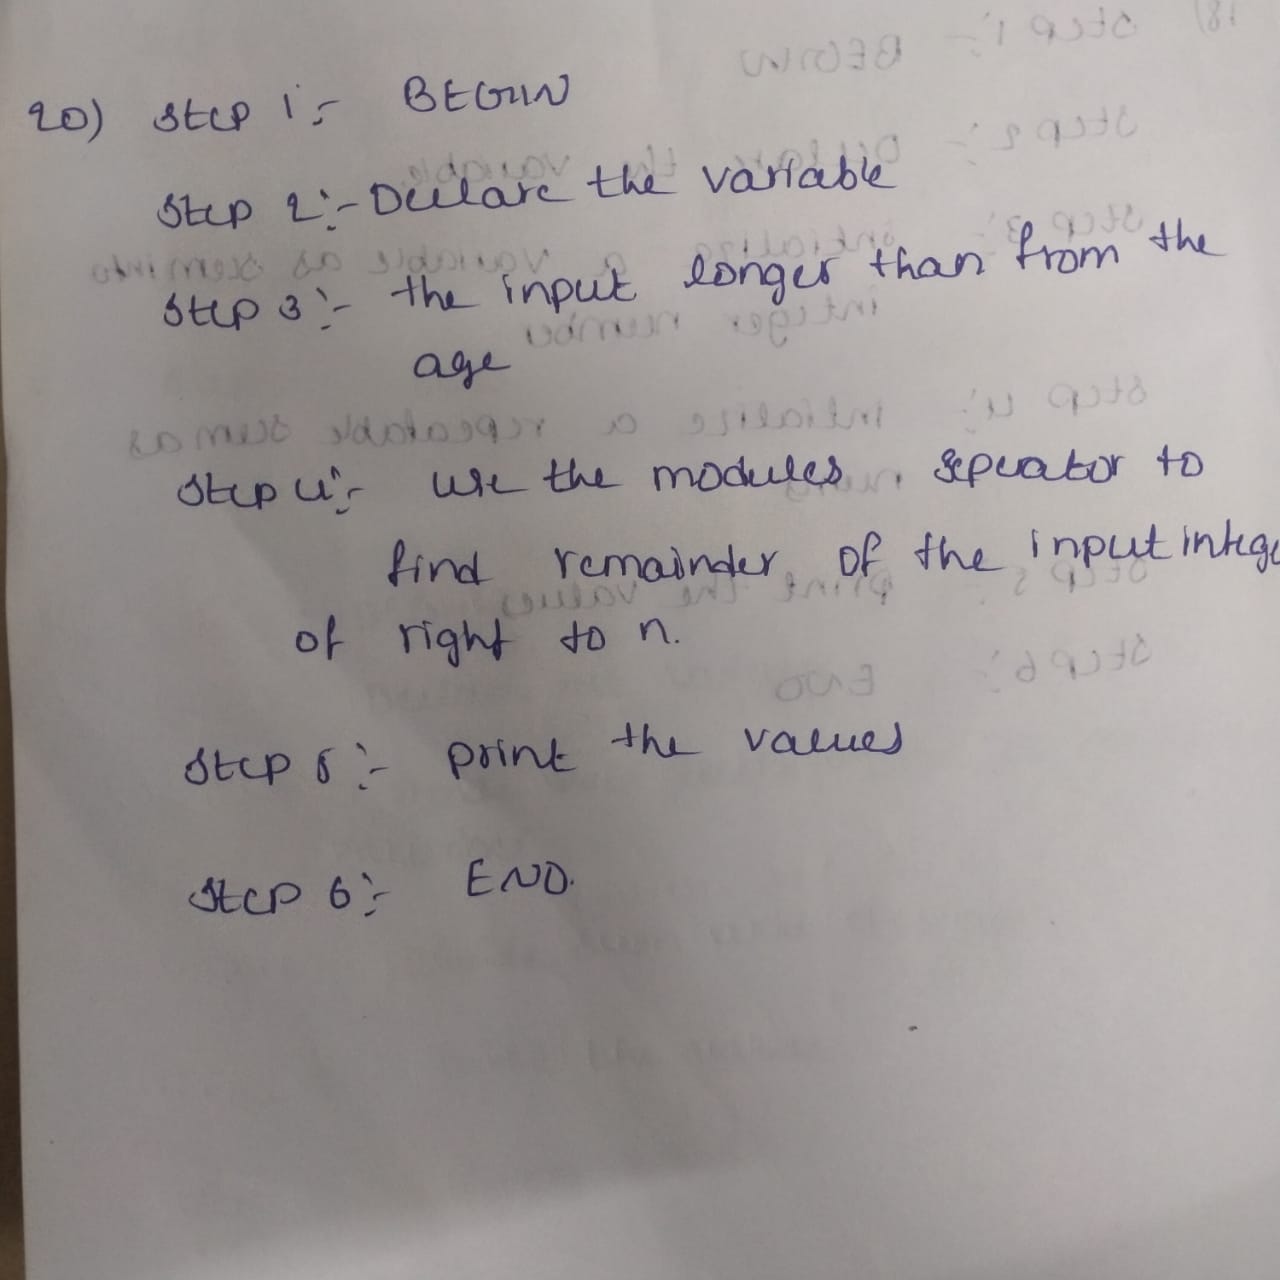 20) Step 1:- BEGIN
Step 2:- Declare the variable
Step 3:- the input longer than from the
age
Step 4:- use the modules seperator to
find remainder of the input intege
of right to n.
Step 5:- print the values
Step 6:- END.